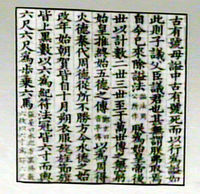 古有號毋諡中古有號死而以行為諡如
此則子議父臣議君也甚無謂朕弗取焉
自今已來除諡法朕為始皇帝後
世以計數二世三世至于萬世傳之無窮
始皇推終始五德之傳以為周得
火德秦代周德從所不勝方今水德之始
改年始朝賀皆自十月朔衣服旄旌節旗
皆上黑數以六為紀符法冠皆六寸而輿
六尺六尺為步乘六馬